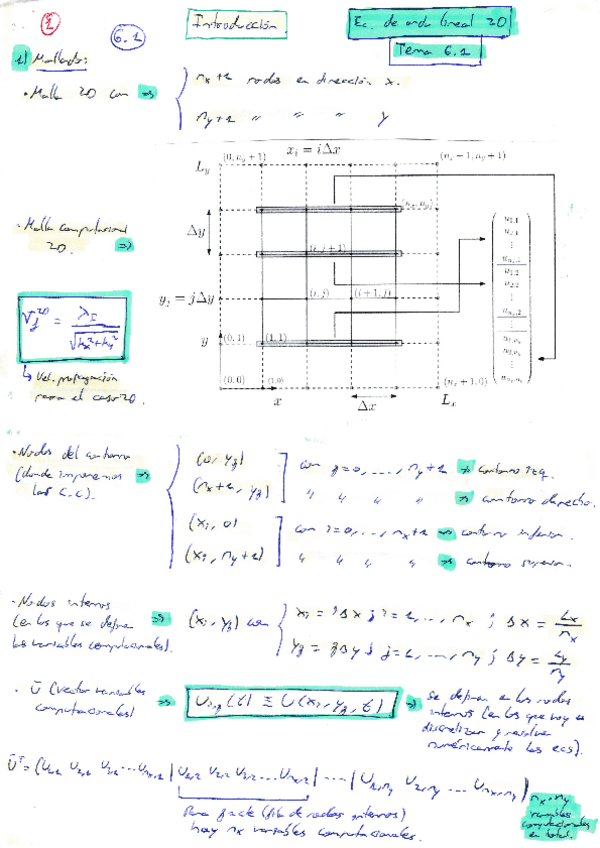 Introducción
Ec. de onda lineal 2D
6.1
Tema 6.1
1) Mallado:
• Malla 2D con ⇒
nx+1 nodos en dirección x.
ny+1 " " " y
x_i = iΔx
(0, n_y+1)
(n_x+1, n_y+1)
L_y
(n_x, n_y)
Δy
(i, j+1)
• Malla computacional 2D. ⇒
y_j = jΔy
(i, j)
(i+1, j)
y
(0,1)
(1,1)
(0,0)
(1,0)
(n_x+1, 0)
x
Δx
L_x
u_{1,1}
u_{2,1}
⋮
u_{n_x,1}
u_{1,2}
u_{2,2}
⋮
u_{n_x,2}
⋮
u_{1,n_y}
u_{2,n_y}
⋮
u_{n_x,n_y}
V_f^{2D} = λ_I / √(k_x²+k_y²)
↳ Vel. propagación
para el caso 2D.
• Nodos del contorno
(donde imponemos ⇒
las C.C).
(0, y_j)
(n_x+1, y_j)
con j=0, ..., n_y+1 → contorno izq.
" " " " → contorno derecho.
(x_i, 0)
(x_i, n_y+1)
con i=0, ..., n_x+1 → contorno inferior.
" " " " → contorno superior.
• Nodos internos
(en los que se definen ⇒
las variables computacionales).
(x_i, y_j) con
x_i = iΔx ; i=1, ..., n_x ; Δx = L_x / n_x
y_j = jΔy ; j=1, ..., n_y ; Δy = L_y / n_y
• Ū (vector variables
computacionales) ⇒
U_{i,j}(t) ≡ U(x_i, y_j, t) ⇒
se definen en los nodos
internos (en los que hay que
discretizar y resolver
numéricamente las ecs).
Ū^T = (U_{1,1} U_{2,1} U_{3,1} ... U_{n_x,1} | U_{1,2} U_{2,2} U_{3,2} ... U_{n_x,2} | ... | U_{1,n_y} U_{2,n_y} ... U_{n_x,n_y})
Para j=cte (fila de nodos internos)
hay nx variables computacionales.
n_x·n_y
variables
computacionales
en total.